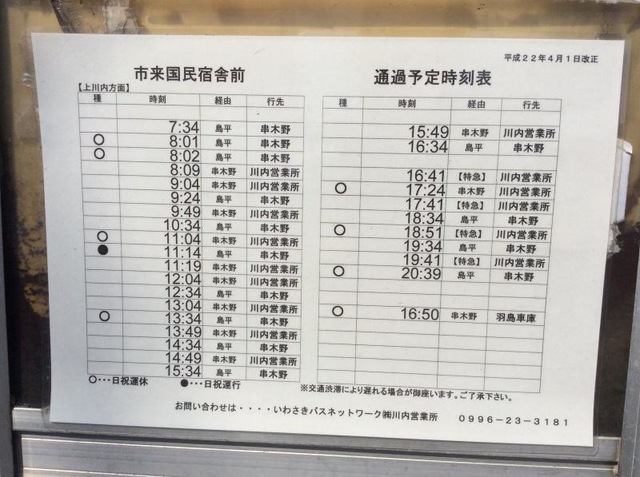 平成22年4月1日改正
市来国民宿舎前 通過予定時刻表
【上川内方面】
種 時刻 経由 行先
7:34 島平 串木野
○ 8:01 島平 串木野
○ 8:02 島平 串木野
8:09 串木野 川内営業所
9:04 串木野 川内営業所
9:24 島平 串木野
9:49 串木野 川内営業所
10:34 島平 串木野
○ 11:04 串木野 川内営業所
● 11:14 島平 串木野
11:19 串木野 川内営業所
12:04 串木野 川内営業所
12:34 島平 串木野
13:04 串木野 川内営業所
○ 13:34 島平 串木野
13:49 串木野 川内営業所
14:34 島平 串木野
14:49 串木野 川内営業所
15:34 島平 串木野
種 時刻 経由 行先
15:49 串木野 川内営業所
16:34 島平 串木野
16:41 【特急】 川内営業所
○ 17:24 串木野 川内営業所
17:41 【特急】 川内営業所
18:34 島平 串木野
○ 18:51 【特急】 川内営業所
19:34 島平 串木野
19:41 【特急】 川内営業所
○ 20:39 島平 串木野
○ 16:50 串木野 羽島車庫
○・・・日祝運休 ●・・・日祝運行
※交通渋滞により遅れる場合が御座います。ご了承下さい。
お問い合わせは・・・・いわさきバスネットワーク㈱川内営業所 0996-23-3181